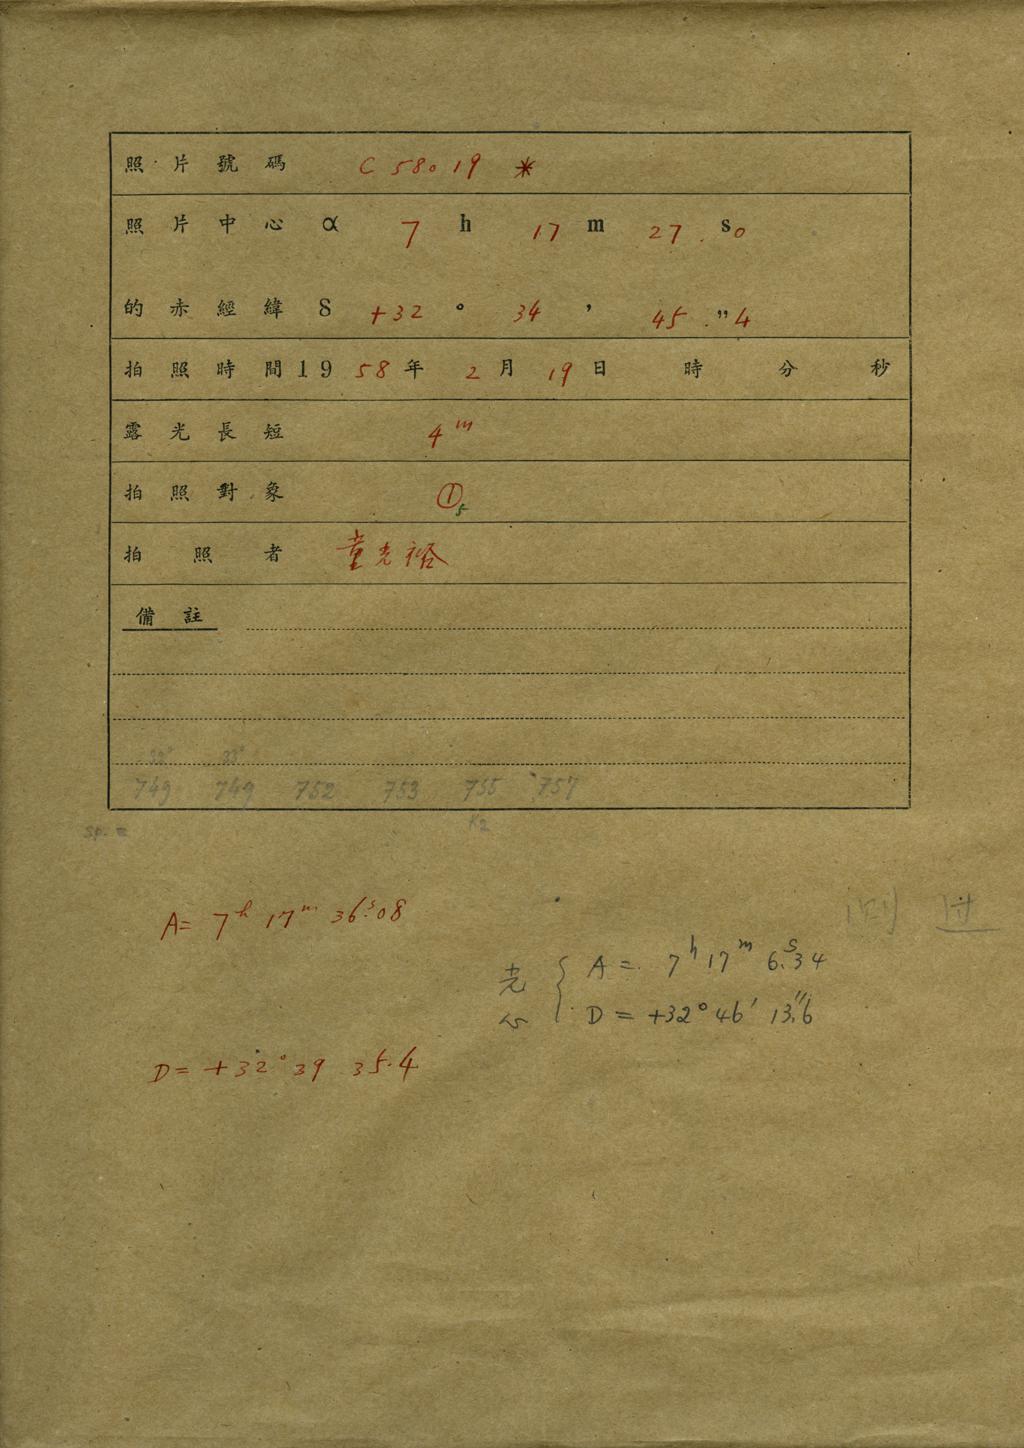 照片號碼 C 58019 *
照片中心 α 7 h 17 m 27 . s 0
的赤經緯 δ +32 ° 34 ' 45 . " 4
拍照時間 1958年 2月 19日 時 分 秒
露光長短 4 m
拍照對象 ①5
拍照者 童光裕
備註
32° 33°
749 749 752 753 755 757
sp. = K2
A= 7h 17m 36s.08
光心 { A = 7h 17m 6s.34
D = +32° 46' 13".6
D= +32° 39 35.4